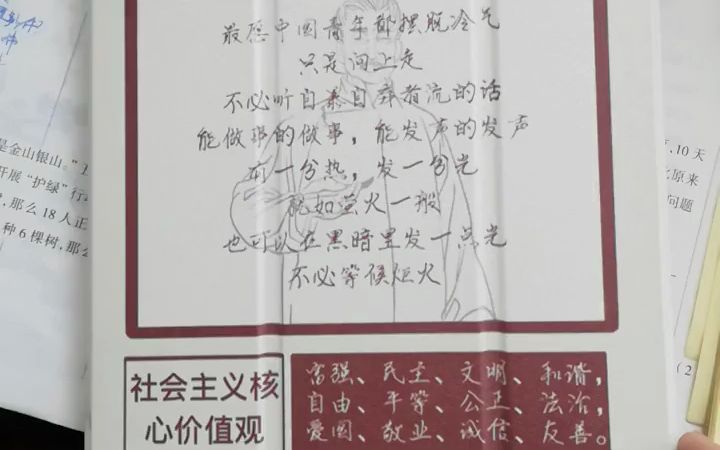 最愿中国青年都摆脱冷气
只是向上走
不必听自暴自弃者流的话
能做事的做事，能发声的发声
有一分热，发一分光
就如萤火一般
也可以在黑暗里发一点光
不必等候炬火
社会主义核
心价值观
富强、民主、文明、和谐，
自由、平等、公正、法治，
爱国、敬业、诚信、友善。
是金山银山。”
开展“护绿”行
，那么18人正
种6棵树，那么
，10天
比原来
问题
(2